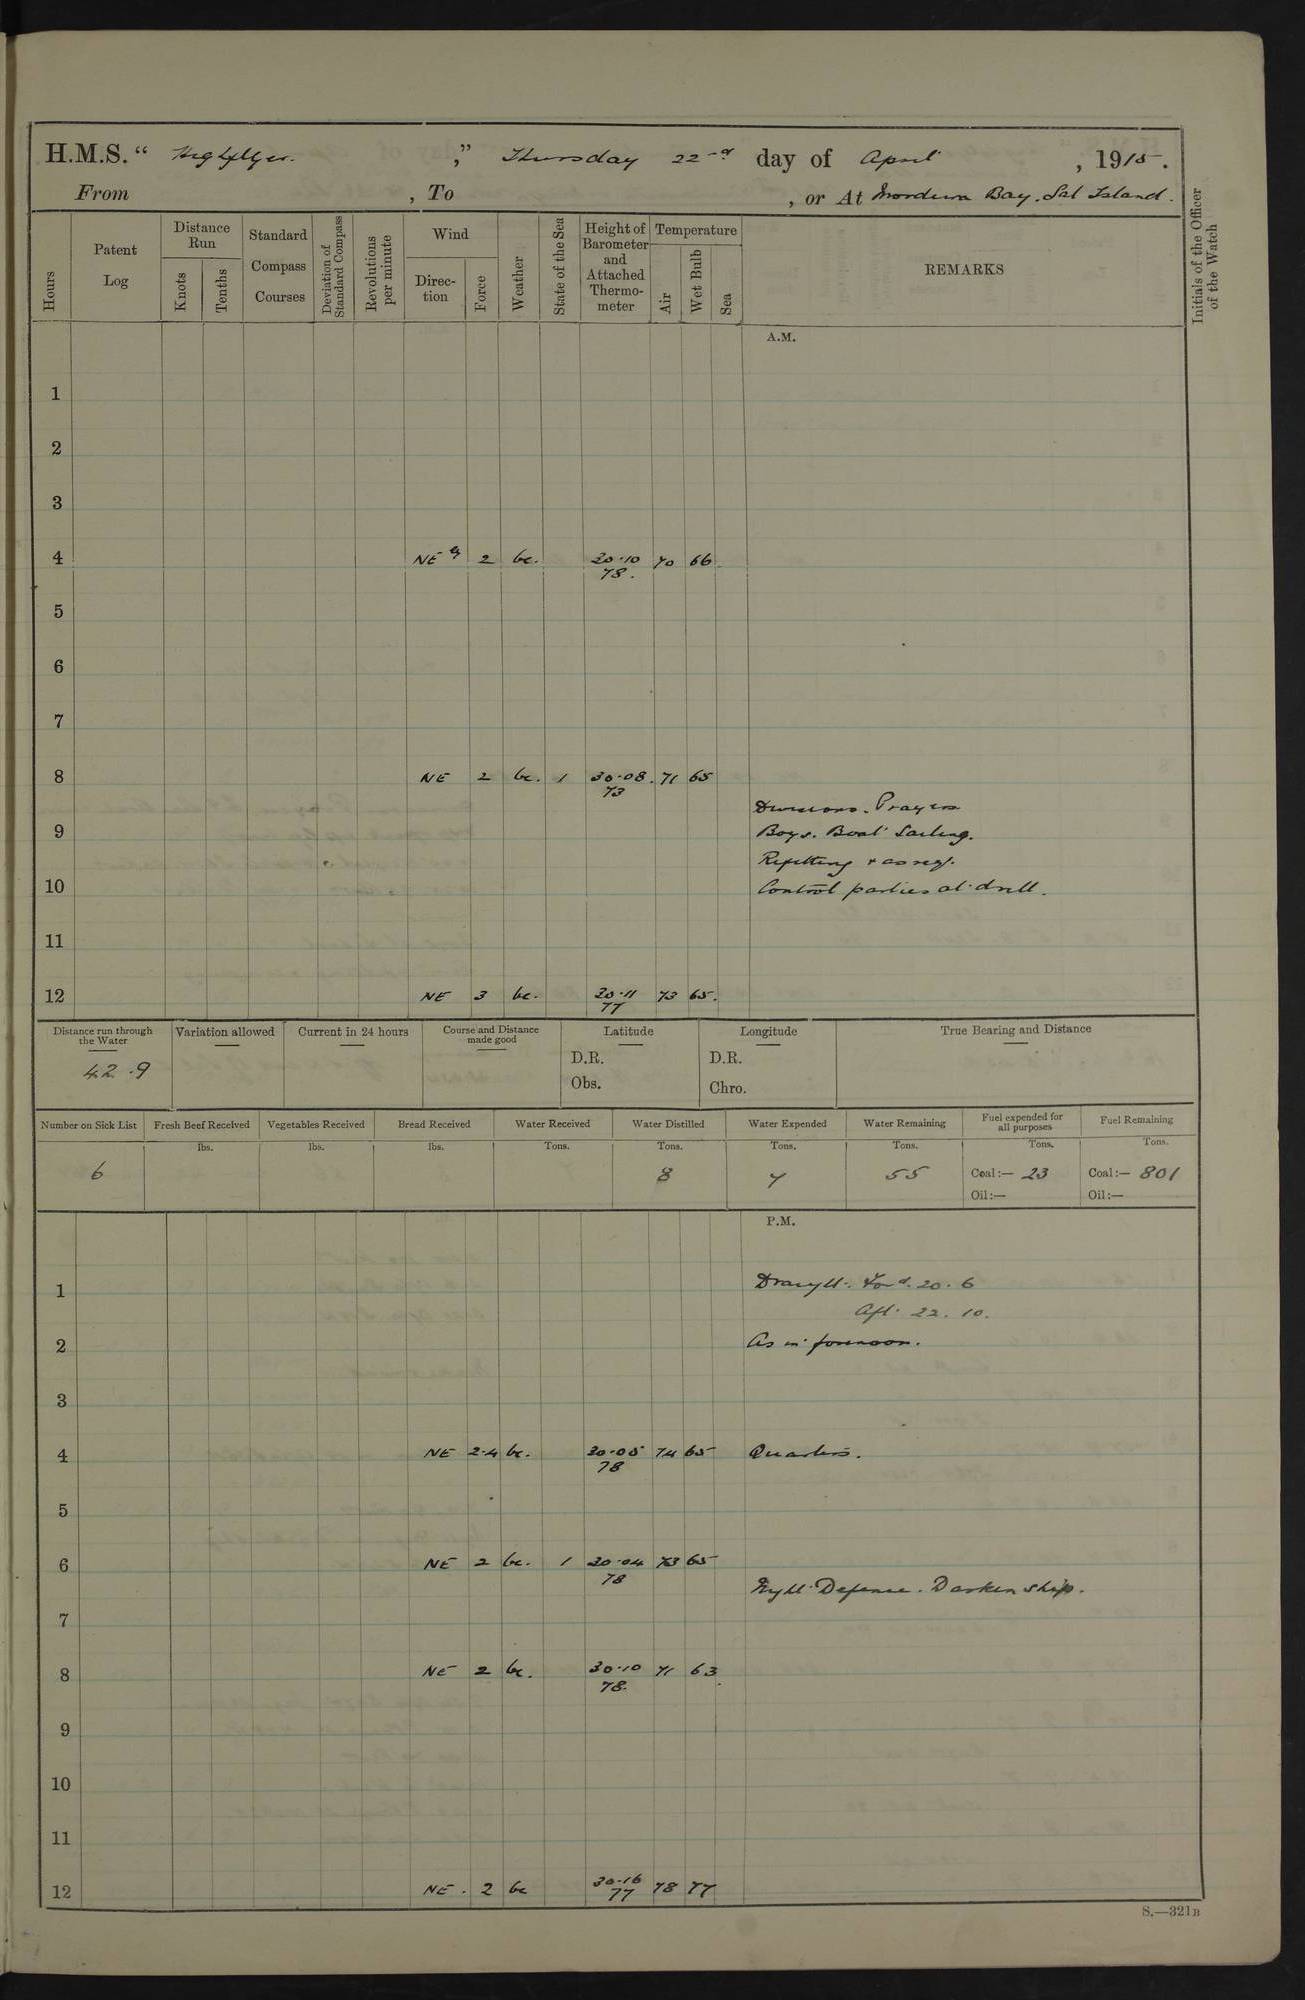 H.M.S. “ Highflyer. ,” Thursday 22nd day of April , 1915.
From , To , or At Mordeira Bay. Sal Island.
Hours
Patent Log
Distance Run
Knots
Tenths
Standard Compass Courses
Deviation of Standard Compass
Revolutions per minute
Wind
Direction
Force
Weather
State of the Sea
Height of Barometer and Attached Thermometer
Temperature
Air
Wet Bulb
Sea
REMARKS
Initials of the Officer of the Watch
A.M.
1
2
3
4 NE 2 bc. 30·10 70 66
78.
5
6
7
8 NE 2 bc. 1 30·08. 71 65
73
Divisions. Prayers
9 Boys. Boat Sailing.
Refitting & as reqd.
10 Control parties at drill.
11
12 NE 3 bc. 30·11 73 65.
77
Distance run through the Water
Variation allowed
Current in 24 hours
Course and Distance made good
Latitude
Longitude
True Bearing and Distance
42.9
D.R. D.R.
Obs. Chro.
Number on Sick List
Fresh Beef Received
Vegetables Received
Bread Received
Water Received
Water Distilled
Water Expended
Water Remaining
Fuel expended for all purposes
Fuel Remaining
lbs. lbs. lbs. Tons. Tons. Tons. Tons. Tons. Tons.
6 8 7 55 Coal:— 23 Coal:— 801
Oil:— Oil:—
P.M.
1 Draught. Ford. 20. 6
Aft. 22. 10.
2 As in forenoon.
3
4 NE 2·4 bc. 30·05 74 65 Quarters.
78
5
6 NE 2 bc. 1 30·04 73 65
78
Night Defence. Darken ship.
7
8 NE 2 bc. 30·10 71 63
78.
9
10
11
12 NE. 2 bc 30·16 78 77
77
S.—321B